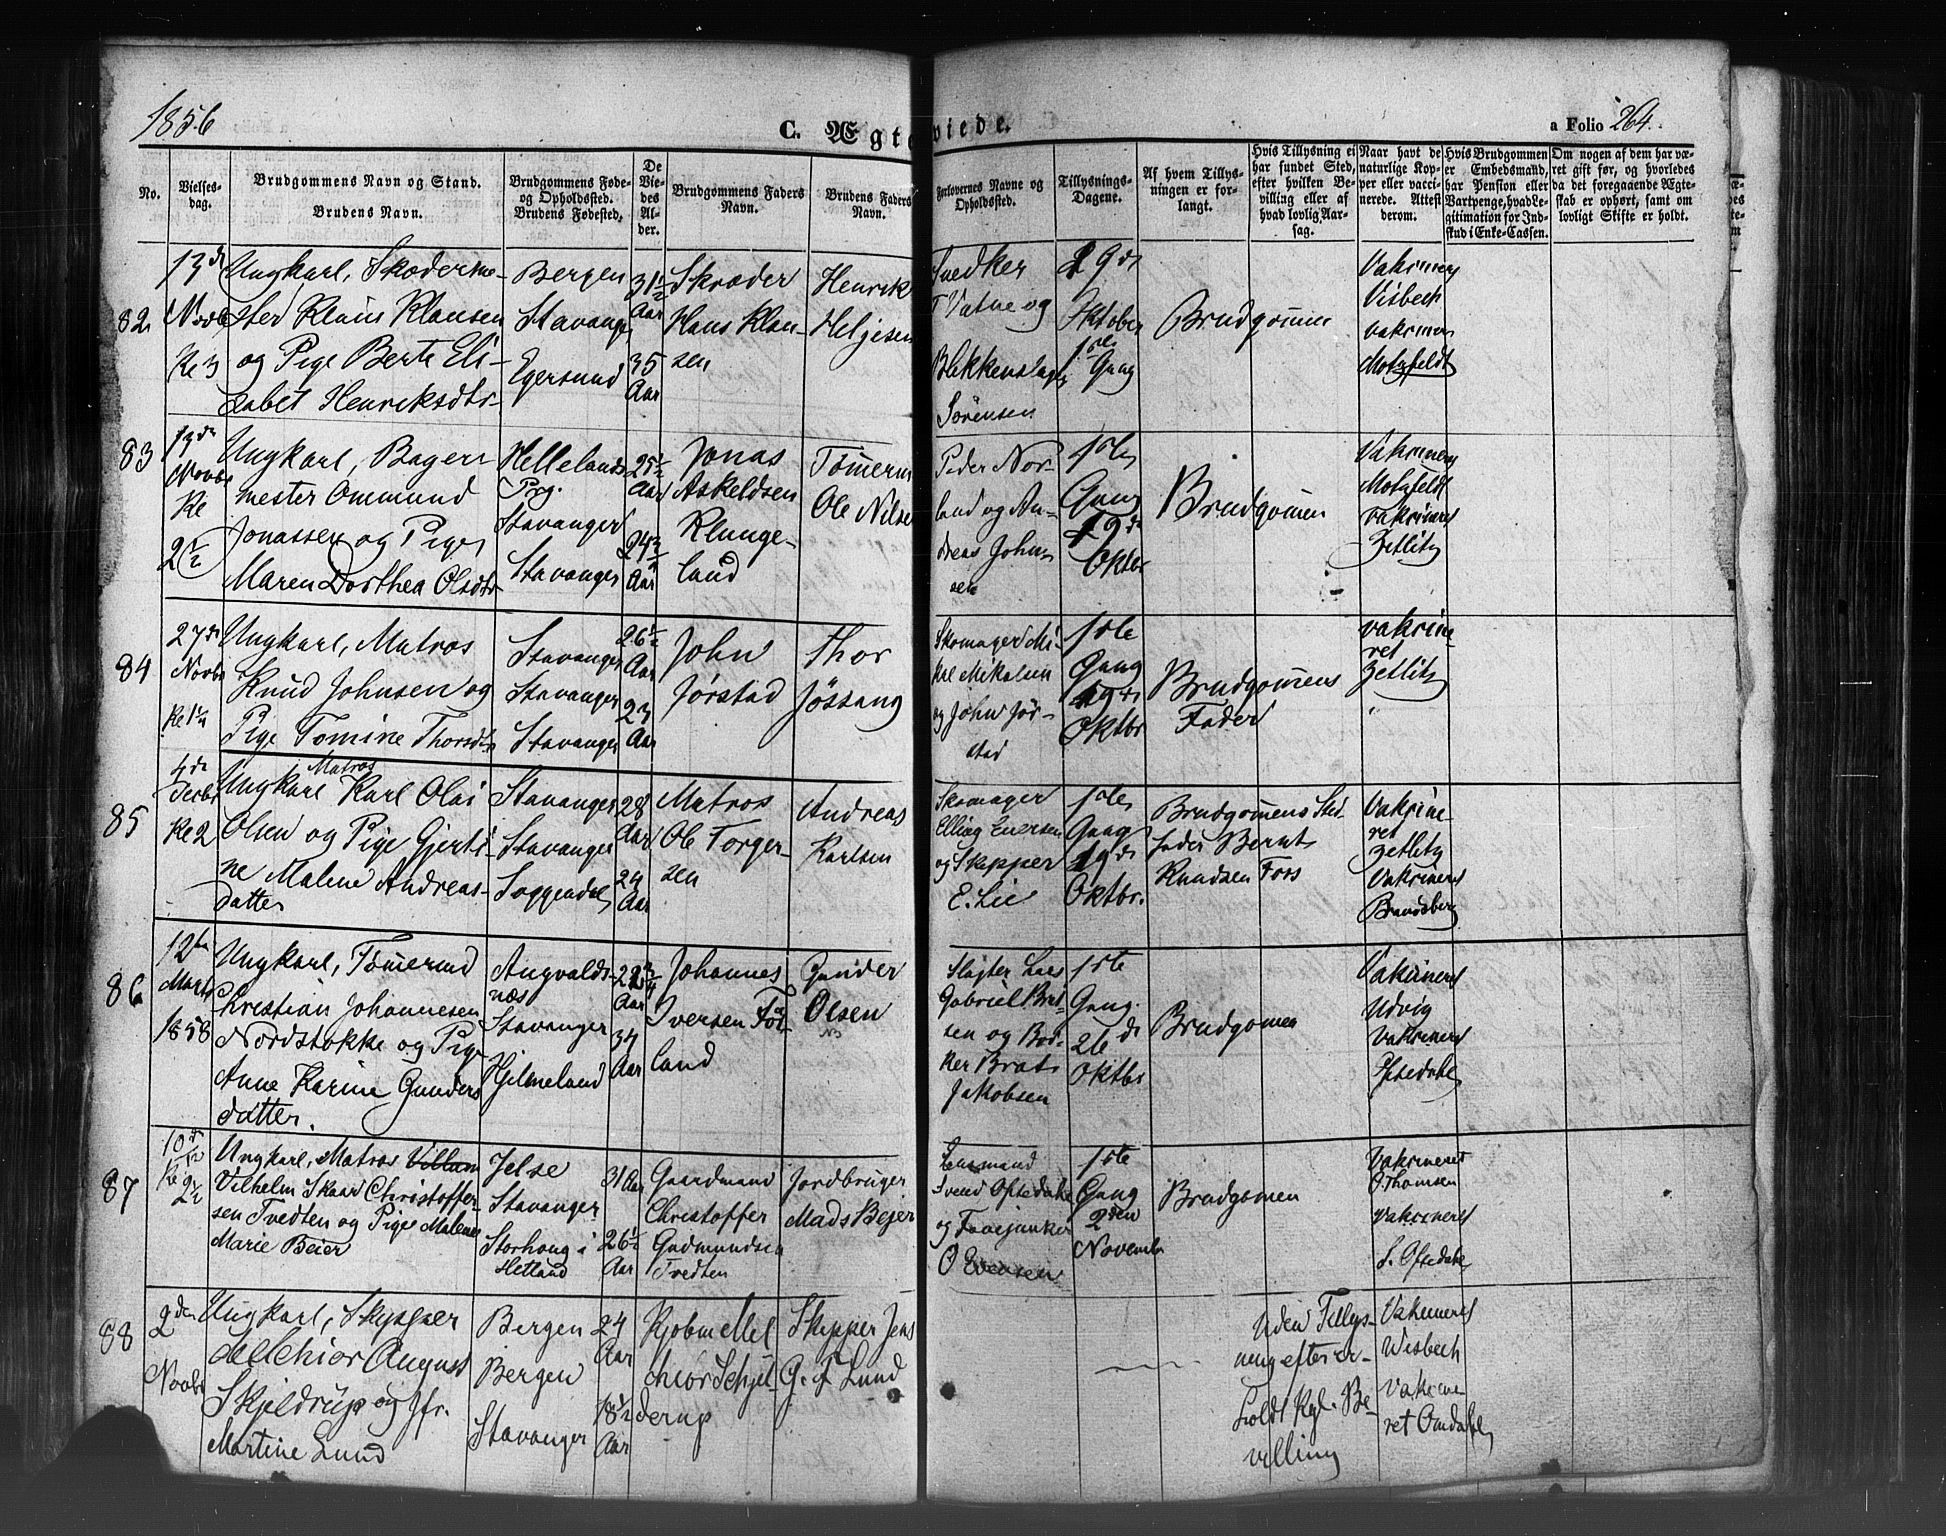 1856
C. Ægteviede.
a Folio 264.
No.
Vielses-
dag.
Brudgommens Navn og Stand.
Brudens Navn.
Brudgommens Føde-
og Opholdssted.
Brudens Fødested,
De
Vie-
des
Al-
der.
Brudgommens Faders
Navn.
Brudens Faders
Navn.
Forlovernes Navne og
Opholdssted.
Tillysnings-
Dagene.
Af hvem Tillys-
ningen er for-
langt.
Hvis Tillysning ei
har fundet Sted,
efter hvilken Be-
villing eller af
hvad lovlig Aar-
sag.
Naar havt de
naturlige Kop-
per eller vacci-
nerede. Attest
derom.
Hvis Brudgommen
er Embedsmand,
har Pension eller
Vartpenge, hvad Le-
gitimation for Ind-
skud i Enke-Cassen.
Om nogen af dem har væ-
ret gift før, og hvorledes
da det foregaaende Ægte-
skab er ophørt, samt om
lovligt Skifte er holdt.
82
13de
Novbr
Kl 3
Ungkarl, Skræderme-
ster Klaus Klausen
og Pige Berte Eli-
sabet Henriksdtr
Bergen
Stavanger
Egersund
31½
Aar
35
Aar
Skræder
Hans Klau-
sen
Henrik
Helgesen
Svedker
T Vatne og
Blikkenslager
Sörensen
19de
Oktober
1ste
Gang
Brudgomen
Vakcinert
Visbech
vakciner
Motzfeldt
83
13de
Novbr
Kl
2½
Ungkarl, Bager-
mester Ommund
Jonassen og Pige
Maren Dorthea Olsdtr
Hellelands
Prg.
Stavanger
Stavanger
25½
Aar
24¾
Aar
Jonas
Askeldsen
Klunge-
land
Tömerm
Ole Nilse
Peder Nor-
land og An-
dreas John-
sen
1ste
Gang
19de
Oktbr
Brudgomen
Vakcinert
Motzfeldt
vakcineret
Zetlitz
84
27de
Novbr
Kl 1½
Ungkarl, Matros
Knud Johnsen og
Pige Tomine Thorsdtr
Stavanger
Stavanger
Stavanger
26½
Aar
23
Aar
John
Jörstad
Thor
Jössang
Skomager Mi-
kal Mikalsen
og John Jör-
stad
1ste
Gang
19de
Oktbr
Brudgomens
Fader
vakcine-
ret
Zetlitz
85
4de
Decbr
Kl 2
Ungkarl Matros Karl Olai
Olsen og Pige Gjerti-
ne Malene Andreas-
datter
Stavanger
Stavanger
Soggendal
28
Aar
24
Aar
Matros
Ole Torger-
sen
Andreas
Karlsen
Skomager
Elling Eversen
og Skipper
E. Lie
1ste
Gang
19de
Oktbr.
Brudgomens Stif-
fader Bernt
Knudsen Foss
Vakcine-
ret
Zetlitz
Vakcineret
Brandsberg
86
12te
Marts
1858
Ungkarl, Tömermd
Christian Johannesen
Nordstokke og Pige
Anne Karine Gunders
datter.
Augvalds-
næs
Stavanger
Hjelmeland
Aar
34
Aar
Johannes
Iversen Föi-
land
Gunder
Olsen
Slagter Lars
Gabriel Brat-
sen og Bød-
ker Brat
Jakobsen
1ste
Gang.
26de
Oktbr
Brudgomen
Vakcineret
Udvig
vakcineret
Oftedahl
87
10de/12
Kl
2½
Ungkarl, Matros Villum
Vilhelm Skaar Christoffer-
sen Tvedten og Pige Malene
Marie Beier
Jelse
Stavanger
Storhoug i
Hetland
31 Aar
26½
Aar
Gaardmand
Christoffer
Gudmundsen
Tvedten
Jordbruger
Mads Bejer
Lensmand
Svend Oftedahl
og
O Evensen
1ste
Gang
2den
Novembr
Brudgomen
Vakcineret
O. Thomsen
vakcineret
S. Oftedahl
88
2den
Novbr
Ungkarl, Skipper
Melchior August
Skjeldrup og Jfr.
Martine Lund
Bergen
Bergen
Stavanger
24
Aar
18½
Aar
Kjöbm Mel
chior Schjel-
derup
Skipper Jens
G. F Lund
Uden Tillys-
ning efter er-
holdt Kgl. Be-
villing
Vakcineret
Wisbech
Vakcine-
ret Omdahl